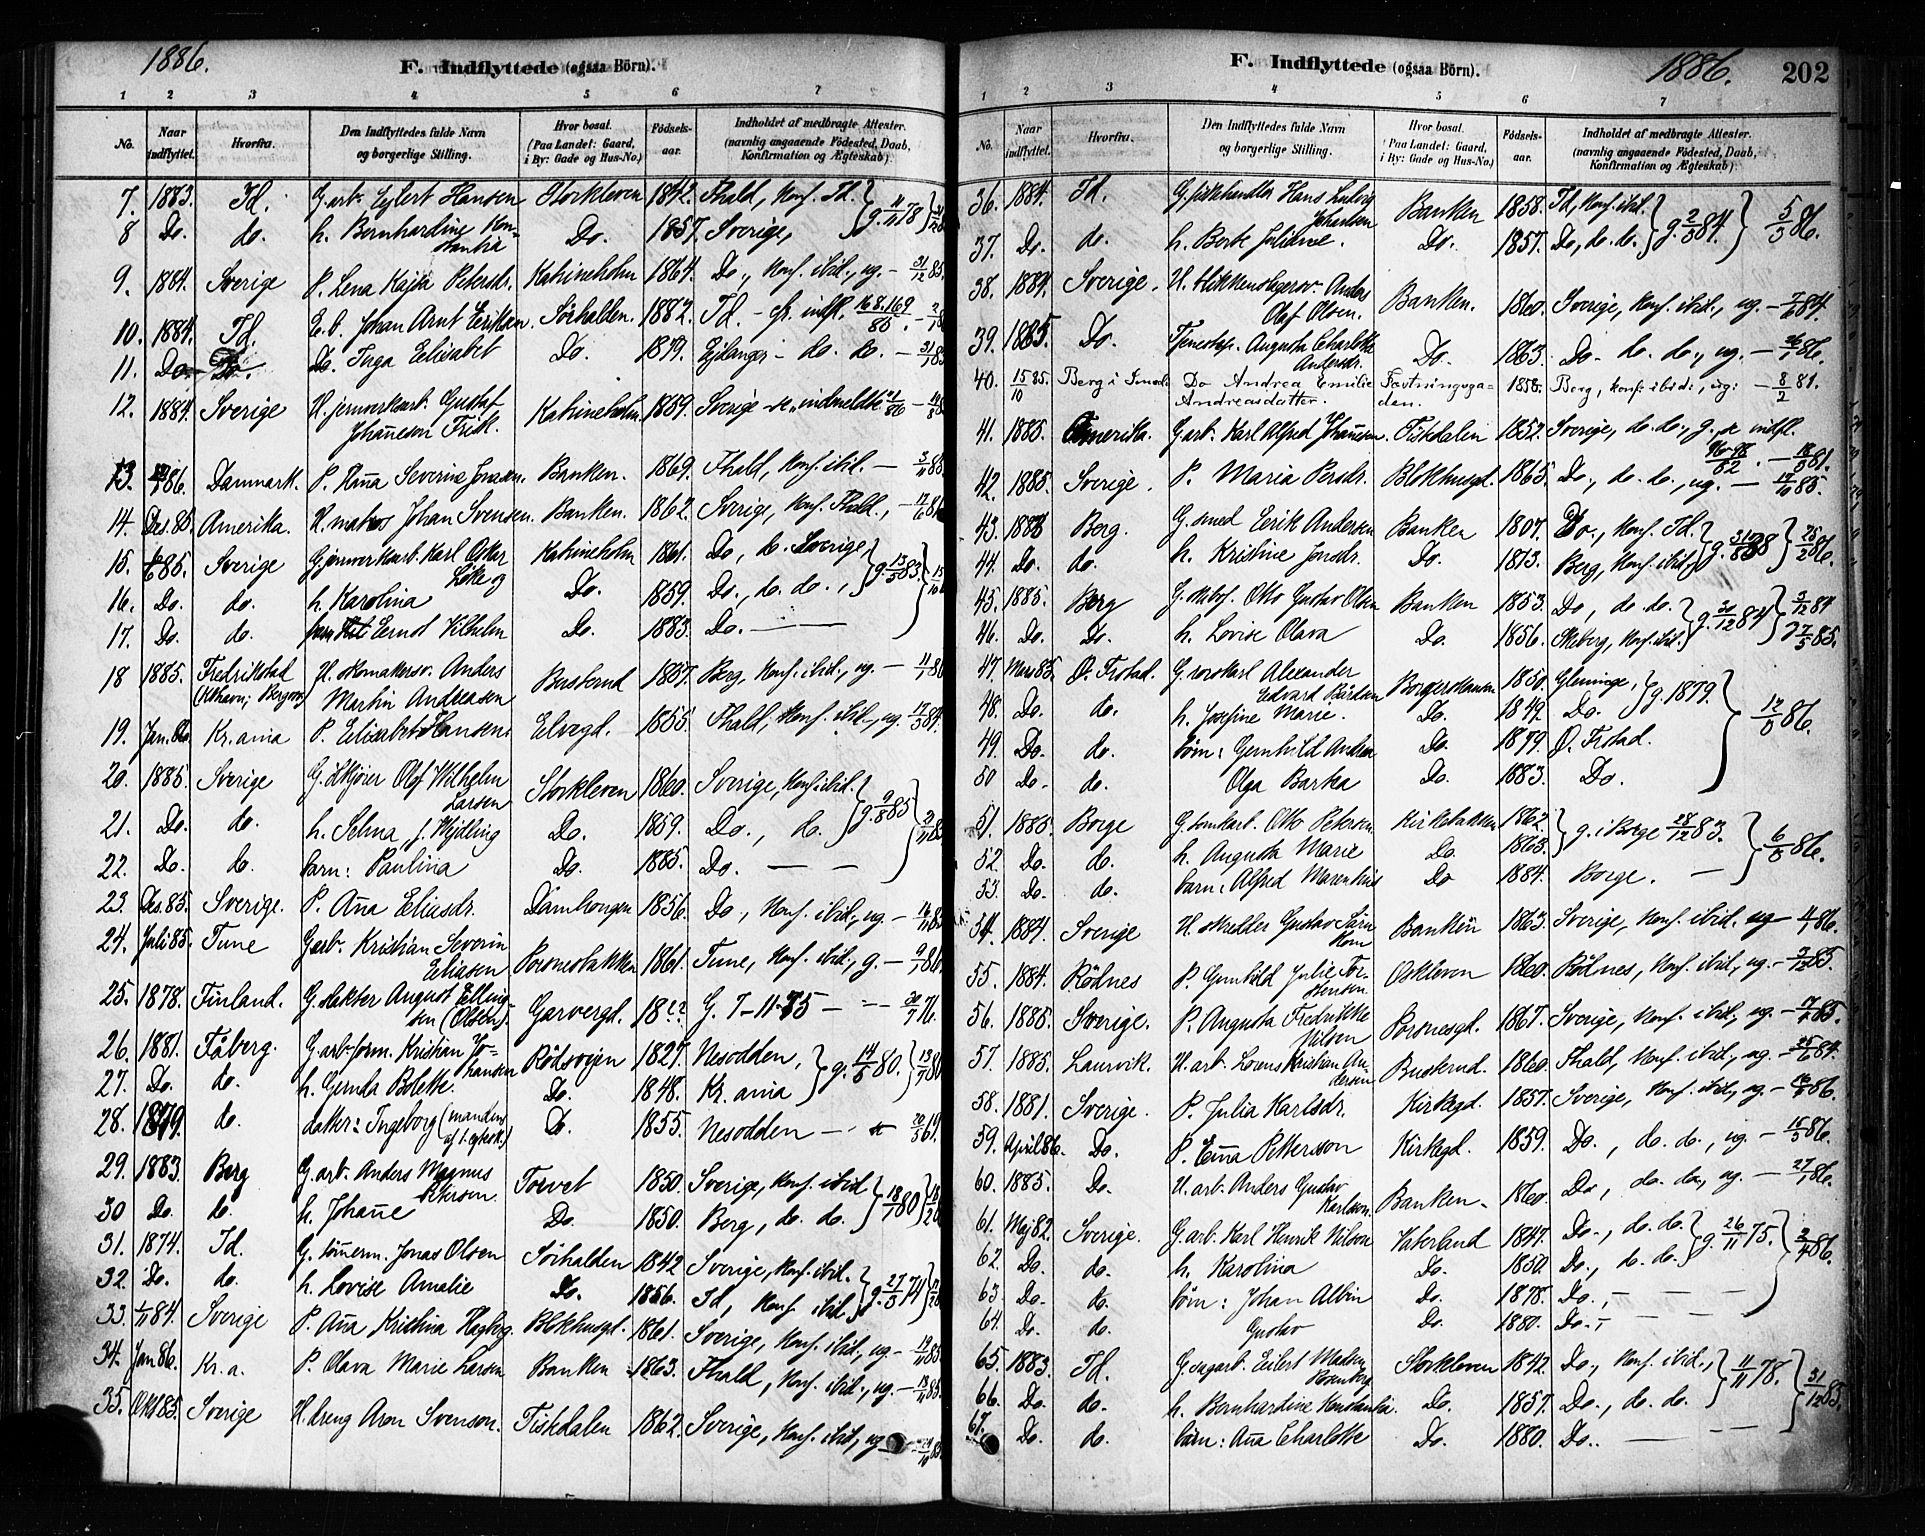 1886.
F. Indflyttede (ogsaa Börn).
1 2 3 4 5 6 7
No. Naar indflyttet. Hvorfra. Den Indflyttedes fulde Navn og borgerlige Stilling. Hvor bosat. (Paa Landet: Gaard, i By: Gade og Hus-No.) Födsels-aar. Indholdet af medbragte Attester. (navnlig angaaende Födested, Daab, Konfirmation og Ægteskab)
7. 1883. Id. G. arb. Ejlert Hansen Storkleven 1842. Fhald, Konf. Id. g. 11/11 78
8 Do. do. h. Bernhardine Konstantia Do. 1857. Sverige,
9. 1884. Sverige P. Lena Kajsa Petersdr. Katrineholm 1864. Do., Konf. ibid., ug. - 31/12 85.
10. 1884. Id. Johan Arnt Eriksen. Sörhalden. 1882. Id. - cfr. indfl. 168.169/85.
11. Do. Do. Do. Inga Elisabet Do. 1879. do. do.
12. 1884. Sverige U. jernverksarb. Gustaf Johanneson Frisk. Katrineholm. 1859. Sverige
13. 86. Danmark. P. Anna Severine Jonasen. Banken. 1869. Fhald, Konf. ibid.
14. Des. 85. Amerika. U. matros Johan Svensen. Banken. 1862. Sverige, Konf. Fhald.,
15. 85. Sverige G. jernverksarb. Karl Oskar Katrineholm 1861. Do., do. Sverige g. 13/5 83.
16. Do. do. h. Karolina Do. 1859. Do., do. do.,
17. Do. do. Ernst Vilhelm Do. 1883. Do.
18 1885. Fredrikstad U. skomakersv. Anders Martin Andreasen Busterud 1857. Berg, Konf. ibid., ug.
19. Jan. Kr.ania P. Elisabet Hansen. Elvegd. 1855. Fhald, Konf. ibid., ug.
20. 1885. Sverige Olof Wilhelm Larsen Storkleven 1860. Sverige, Konf. ibid. g. 9/8 85
21. Do. do. h. Selma, f. Do. 1859. Do., do.
22. Do. do. barn: Paulina Do. 1885. Do. — —
23. Des. 85. Sverige. P. Anna Eliasdr. Damhougen 1856. Do., Konf. ibid., ug.
24. Juli 85. Tune G. arb. Kristian Severin Eliasen Porsnesbakken 1861. Tune, Konf. ibid., g. - 9/1 86.
25. 1878. Finland. G. slakter August Ellingsen (Olsen). Garvergd. 18?? G. 7-11-75 - 20/7 76.
26. 1881. Fåberg. G. arb. form. Kristian Johansen Rödsvejen 1827. Nesodden, g. 14/5 80.
27. Do. do. h. Gernda Bolette. Do. 1848. Kr. ania
28. 1879. do. datter: Ingeborg (mandens af 1. egtesk.) Do. 1855. Nesodden
29. 1883. Berg G. arb. Anders Magnus Petersen. Torvet 1850. Sverige, Konf. ibid 18/1 80
30 Do. do. h. Johanne Do. 1850. Berg, do. do.
31. 1874. Id. G. tömerm. Jonas Olsen Sörhalden 1842 Sverige, Konf. ibid. g. 27/3 74
32. Do. do. h. Lovise Amalie Do. 1856. Id, Konf. ibid.
33. 84. Sverige P. Anna Kristina Hagberg. Blokhusgd. 1861. Sverige, Konf. ibid., ug.
34. Jan 86. Kr.a. P. Olava Marie Larsen Banken 1863. Fhald, Konf. ibid., ug.
35. Okt 85. Sverige U. dreng Aron Svenson. Fiskdalen 1862. Sverige, Konf. ibid., ug
F. Indflyttede (ogsaa Börn).
1886.
202
1 2 3 4 5 6 7
No. Naar indflyttet. Hvorfra. Den Indflyttedes fulde Navn og borgerlige Stilling. Hvor bosat. (Paa Landet: Gaard, i By: Gade og Hus-No.) Födsels-aar. Indholdet af medbragte Attester. (navnlig angaaende Födested, Daab, Konfirmation og Ægteskab)
36. 1884. Id. G. fiskehandler Hans Ludvig Johansen Banken 1858. Id, Konf. ibid. g. 2/3 84. 5/5 86.
37. Do. do. h. Berte Juliane. Do. 1857. Do, do. do.
38. 1884. Sverige. U. blikkenslagersv. Anders Olaf Olsen. Banken. 1860. Sverige, Konf. ibid., ug.
39. 1885. Do. Tjenestep. Augusta Charlotta Andersdr. Do. 1863. Do. do. do., ug.
40. 15/10 85. Berg i Smaal. Do Andrea Emilie Andreasdatter. Fæstningsgaden. 1856. Berg, konf: ibid:, ug: - 8/2 81.
41. 1885. Amerika. G. arb. Karl Alfred Johannesen. Fiskdalen 1852. Sverige, do. do., g. se indfl. 96-98/82. - 18/3 81.
42. 1885. Sverige. P. Maria Persdr. Blokhusgd. 1865. Do., do. do., ug.
43. Berg. G. smed Eerik Andersen Banken 1807. Do., Konf. Id. 25/2 86.
44. Do. do. h. Kristine Jonsdr. Do. 1813. Berg, Konf. ibid.
45. 1885. Berg Otto Gustav Olsen Banken 1853. Do, do. do. g. 30/12 84
46. Do. Do. h. Lovise Olava Do. 1856. Skeberg, Konf. ibid.
47. Mars 85. Ö. Frstad. G. Alexander Edvard Borgerskansen 1850. Glemminge, g. 1879.
48. Do. do. h. Josefine Marie. Do. 1849. Do.
49. Do. do. börn: Gernhild Andrea Do. 1879. Ö. Frstad. 12/5 86.
50 Do. do. Olga Do. 1883. Do.
51. 1885. Borge Otto Petersen Kirkebakken 1862. g. i Borge 28/12 83.
52. Do. do. h. Augusta Marie Do. 1863.
53. Do. do. barn: Alfred Marentius Do 1884. Borge. —
54. 1884. Sverige U. skredder Gustav Banken 1863. Sverige, Konf. ibid. ug
55. 1884. Rödnes P. Gunhild Julie Torstensen Oskleven 1860. Rödnes, Konf. ibid., ug.
56. 1885. Sverige. P. Augusta Fredrikke Nilsen Porsnesgd. 1867. Sverige, Konf. ibid., ug
57. 1885. Laurvik. U. arb. Lorens Kristian Andersen Busterud. 1860. Fhald, Konf. ibid., ug.
58. 1881. Sverige. P. Julia Karlsdr. Kirkegd. 1857. Sverige, Konf. ibid., ug.
59. April 86. Do. P. Emma Pettersson Kirkegd. 1859. Do., do. do., ug.
60. 1885. Do. U. arb. Anders Gustav Karlsson. Banken. 1860. Do., do. do., ug. - 27/1 86.
61. Maj 82. Sverige. G. arb. Karl Henrik Nilsson Vaterland 1847. Do., do. do. g. 26/11 75.
62. Do. do. h. Karolina Do. 1850. Do., do. do.
63. Do. do. börn: Johan Albin Do. 1878. Do., - — —
64. Do. do. Gustav Do. 1880. Do.,
65. 1883. Id. G. sagarb. Eilert Madsen Rosenberg Storkleven 1842. Do., Konf. ibid., 11/11 78. 31/12 85.
66. Do. do. h. Bernhardine Konstantia. Do. 1857. Do., do. do.
67. Do. do. barn: Anna Charlotte Do. 1880. Do.. — — —